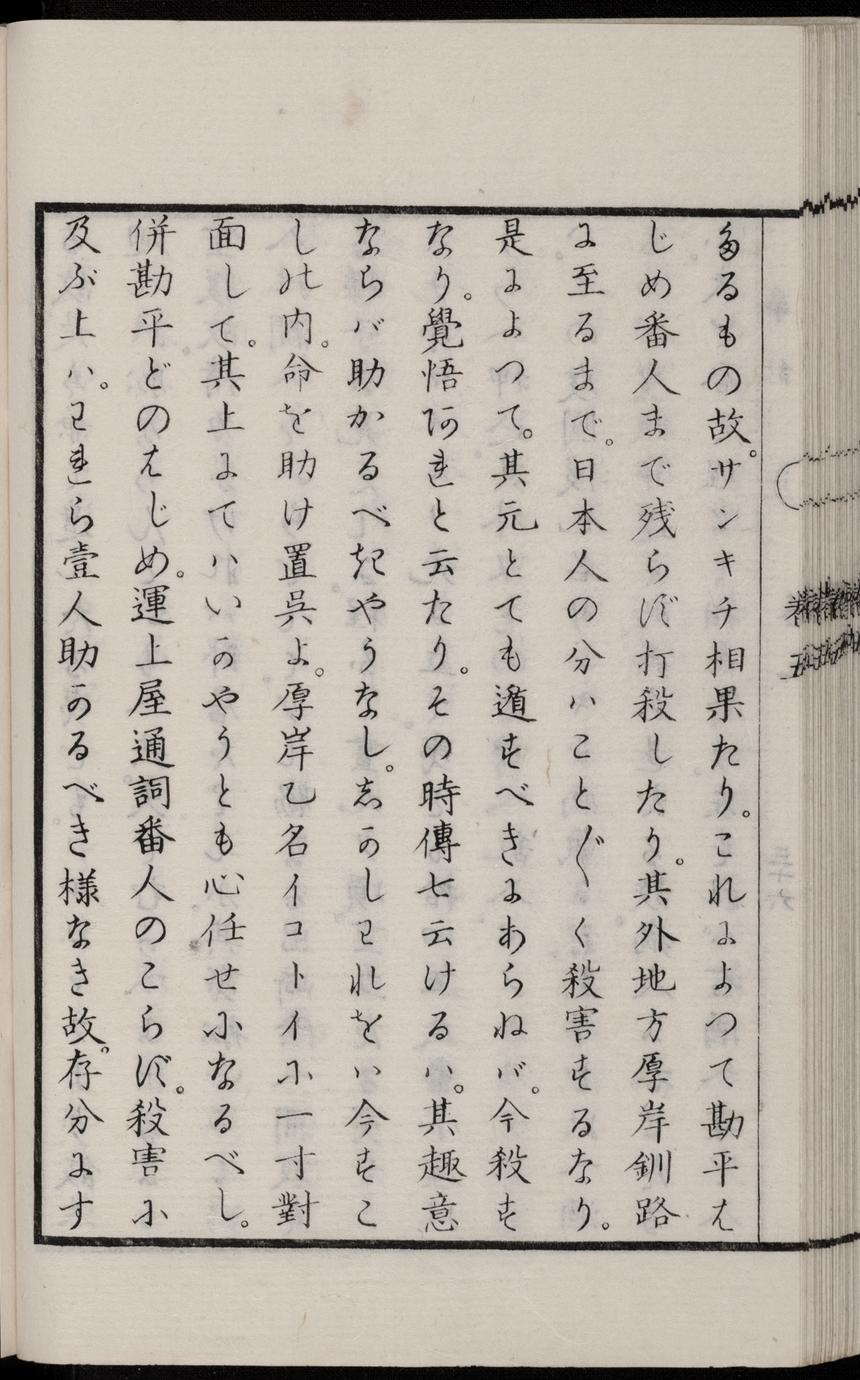 たるもの故。サンキチ相果たり。これによつて勘平は
じめ番人まで残らず打殺したり。其外地方厚岸釧路
に至るまで。日本人の分ハこと〴〵く殺害するなり。
是によつて。其元とても遁すべきにあらねバ。今殺す
なり。覺悟あれと云たり。その時傳七云けるハ。其趣意
ならバ助かるべきやうなし。志かしわれをハ今すこ
しの内。命を助け置呉よ。厚岸乙名イコトイに一寸對
面して。其上にてハいかやうとも心任せになるべし。
併勘平どのはじめ。運上屋通詞番人のこらず。殺害に
及ぶ上ハ。われら壹人助かるべき様なき故。存分にす